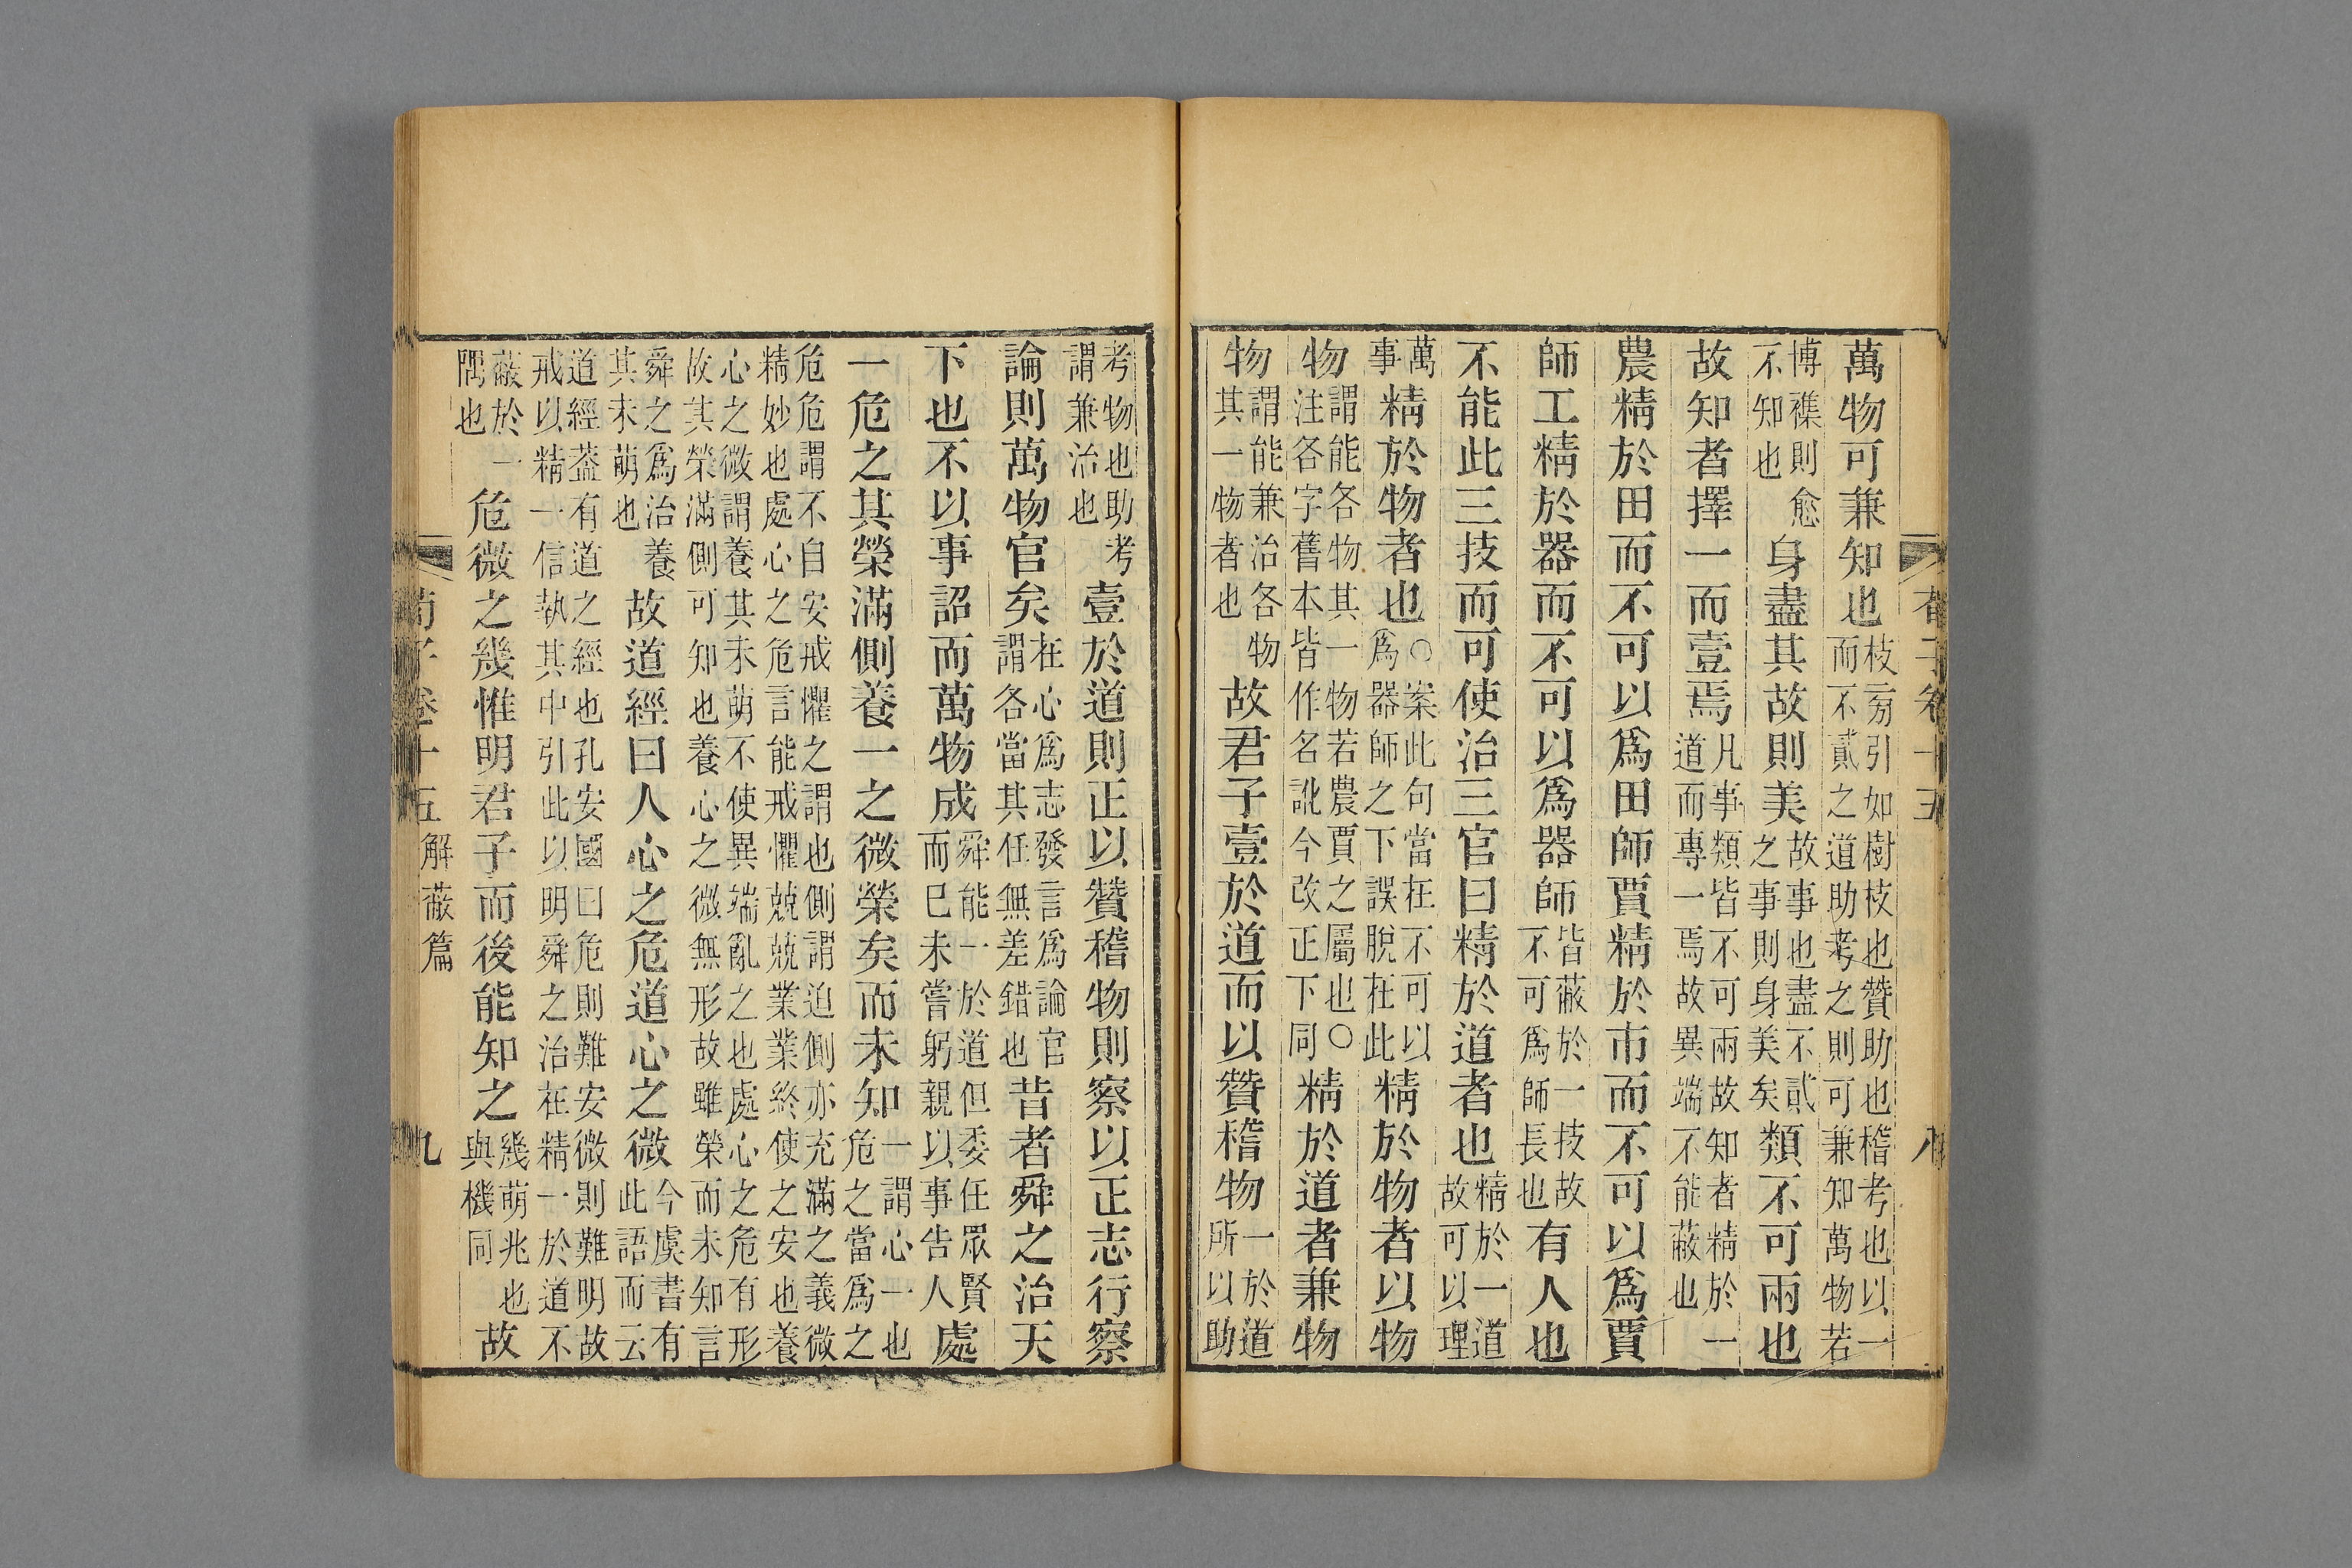 荀子卷十五 八
萬物可兼知也枝旁引如樹枝也贊助也稽考也以一
而不貳之道助考之則可兼知萬物若
博襍則愈
不知也身盡其故則美故事也盡不貳
之事則身美矣類不可兩也
故知者擇一而壹焉凡事類皆不可兩故知者精於一
道而專一焉故異端不能蔽也
農精於田而不可以爲田師賈精於市而不可以爲賈
師工精於器而不可以爲器師皆蔽於一技故
不可爲師長也有人也
不能此三技而可使治三官曰精於道者也精於一道
故可以理
萬
事精於物者也○案此句當在不可以
爲器師之下誤脫在此精於物者以物
物謂能各物其一物若農賈之屬也○
注各字舊本皆作名訛今改正下同精於道者兼物
物謂能兼治各物
其一物者也故君子壹於道而以贊稽物一於道
所以助
考物也助考
謂兼治也壹於道則正以贊稽物則察以正志行察
論則萬物官矣在心爲志發言爲論官
謂各當其任無差錯也昔者舜之治天
下也不以事詔而萬物成舜能一於道但委任眾賢
而已未嘗躬親以事告人處
一危之其榮滿側養一之微榮矣而未知一謂心一也
危之當爲之
危危謂不自安戒懼之謂也側謂迫側亦充滿之義微
精妙也處心之危言能戒懼兢兢業業終使之安也養
心之微謂養其未萌不使異端亂之也處心之危有形
故其榮滿側可知也養心之微無形故雖榮而未知言
舜之爲治養
其未萌也故道經曰人心之危道心之微今虞書有
此語而云
道經蓋有道之經也孔安國曰危則難安微則難明故
戒以精一信執其中引此以明舜之治在精一於道不
蔽於一
隅也危微之幾惟明君子而後能知之幾萌兆也
與機同故
荀子卷十五 解蔽篇 九